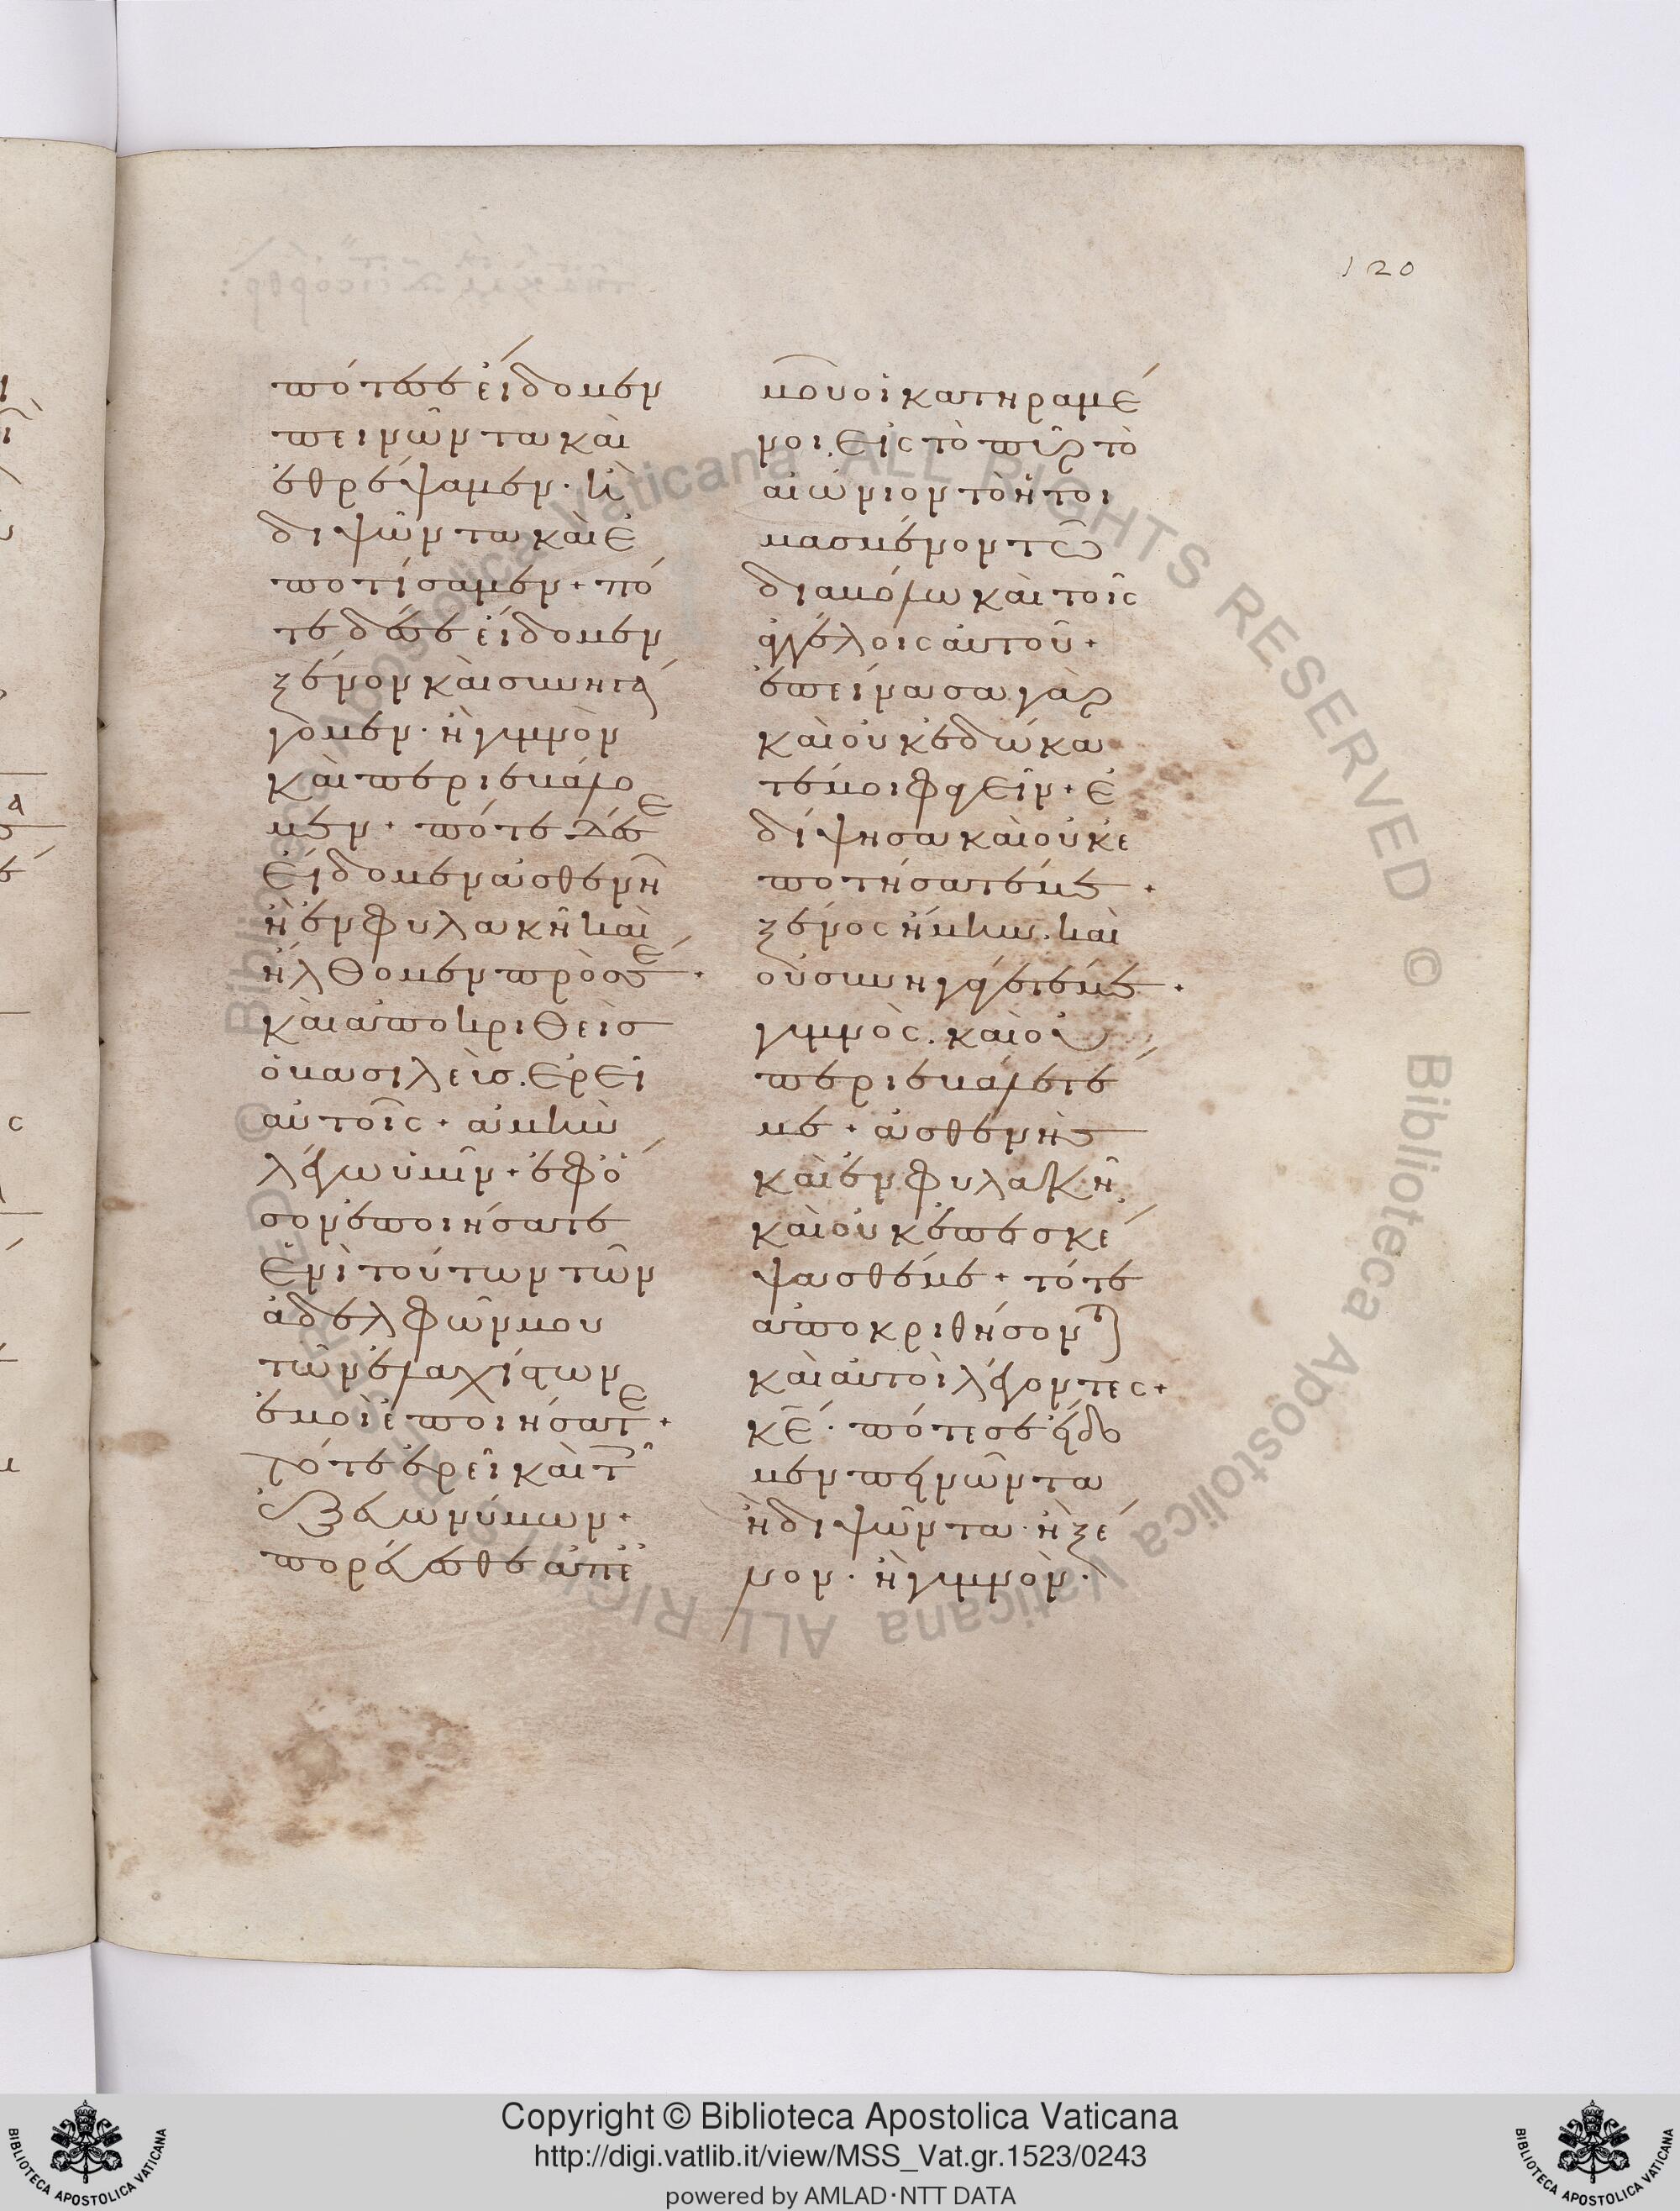 120
πότε σε εἴδομεν
πεινῶντα καὶ
ἐθρέψαμεν · ἢ
διψῶντα καὶ ἐ
ποτίσαμεν + πό
τε δέ σε εἴδομεν
ξένον καὶ συνηγά
γομεν · ἢ γυμνὸν
καὶ περιεβάλο
μεν + πότε δέ σε
εἴδομεν ἀσθενῆ
ἢ ἐν φυλακῆ καὶ
ἤλθομεν πρὸς σέ +
καὶ ἀποκριθεὶς
ὁ βασιλεὺς . ἐρεῖ
αὐτοῖς + ἀμὴν
λέγω ὑμῖν + ἐφό
σον ἐποιήσατε
ἑνὶ τούτων τῶν
ἀδελφῶν μου
τῶν ἐλαχίστων
ἐμοὶ ἐποιήσατε +
τότε ἐρεῖ καὶ τοῖς
ἐξ εὐωνύμων +
πορεύεσθε ἀπ' ἐ
μοῦ οἱ κατηραμέ
νοι . εἰς τὸ πῦρ τὸ
αἰώνιον τὸ ἡτοι
μασμένον τῶ
διαβόλω καὶ τοῖς
ἀγγέλοις αὐτοῦ +
ἐπείνασα γὰρ
καὶ οὐκ ἐδώκα
τέ μοι φαγεῖν + ἐ
δίψησα καὶ οὐκ ἐ
ποτήσατέ με +
ξένος ἤμην . καὶ
οὐ συνηγάγετέ με +
γυμνὸς . καὶ οὐ
περιεβάλετέ
με + ἀσθενὴς
καὶ ἐν φυλακῆ
καὶ οὐκ ἐπεσκέ
ψασθέ με + τότε
ἀποκριθήσονται
καὶ αὐτοὶ λέγοντες +
κε · πότε σε εἴδο
μεν πεινῶντα
ἢ διψῶντα · ἢ ξέ
νον · ἢ γυμνὸν ·
Copyright © Biblioteca Apostolica Vaticana
http://digi.vatlib.it/view/MSS_Vat.gr.1523/0243
powered by AMLAD·NTT DATA
BIBLIOTECA APOSTOLICA VATICANA
BIBLIOTECA APOSTOLICA VATICANA